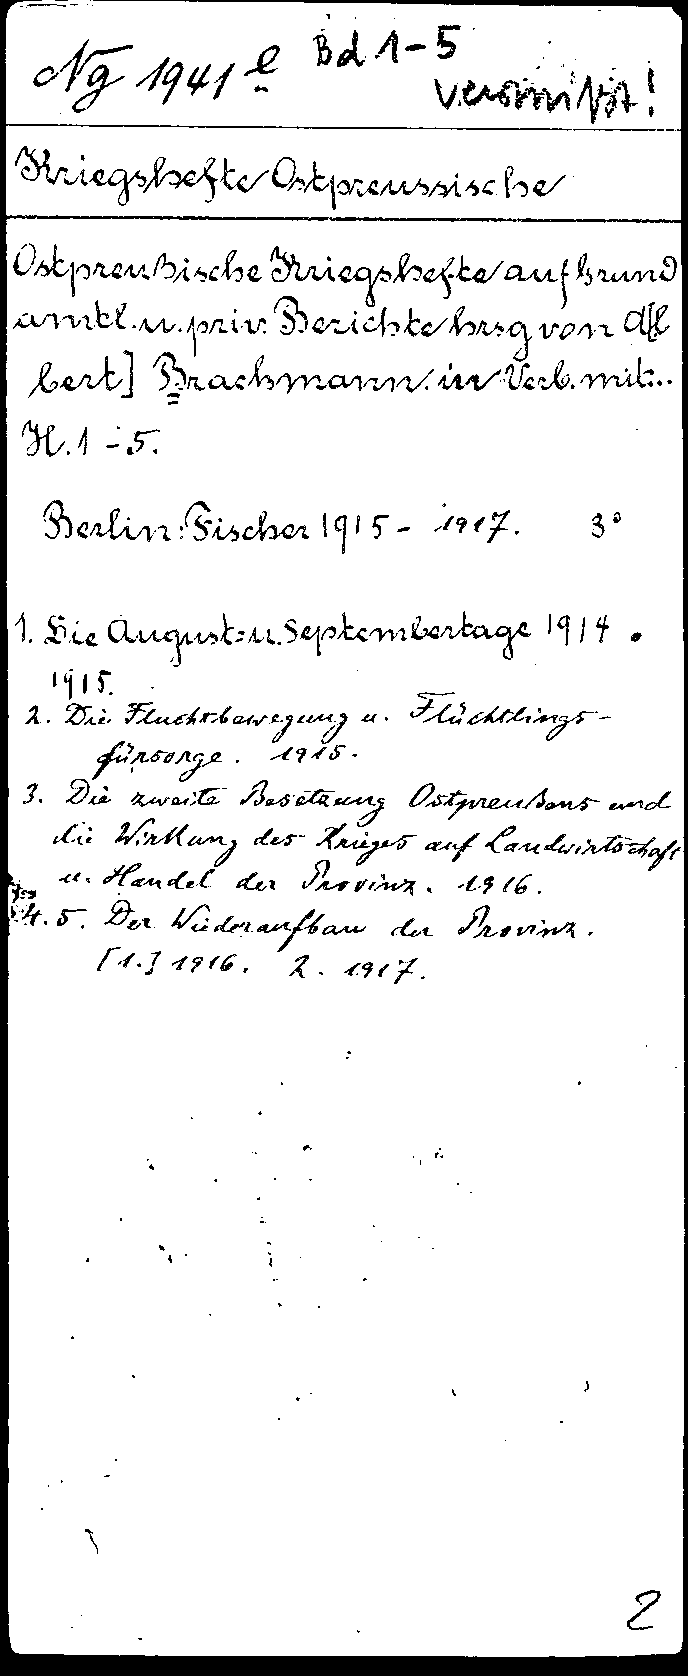 Ng 1941 e Bd 1-5
vermißt!
Kriegshefte Ostpreussische
Ostpreußische Kriegshefte auf Grund
amtl. u. priv. Berichte hrsg von A[l
bert] Brachmann in Verb. mit..
H. 1-5.
Berlin: Fischer 1915- 1917. 3°
1. Die August- u. Septembertage 1914.
1915.
2. Die Fluchtbewegung u. Flüchtlings-
fürsorge. 1915.
3. Die zweite Besetzung Ostpreußens und
die Wirkung des Krieges auf Landwirtschaft
u. Handel der Provinz. 1916.
4.5. Der Wiederaufbau der Provinz.
[1.] 1916. 2. 1917.
2